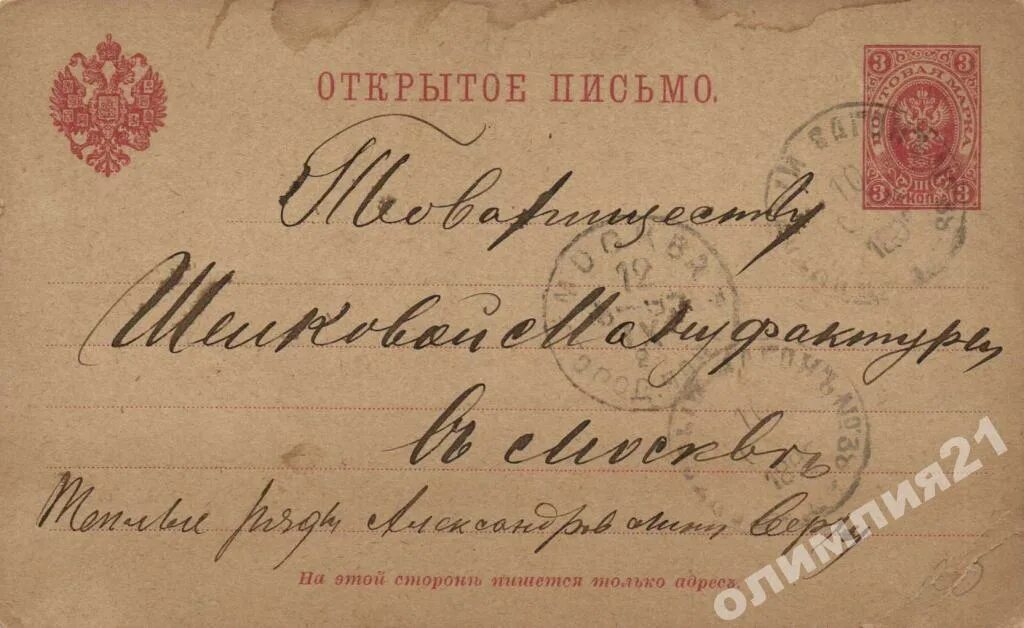 ОТКРЫТОЕ ПИСЬМО.
3 3
ПОЧТОВАЯ МАРКА
3 III КОП. 3
Товариществу
МОСКВА
12
Шелковой Мануфактуры
ГОРОД.
ВАГОНЪ № 38
въ Москвѣ
Теплые ряды Александров линия
На этой сторонѣ пишется только адресъ.
олимпия21